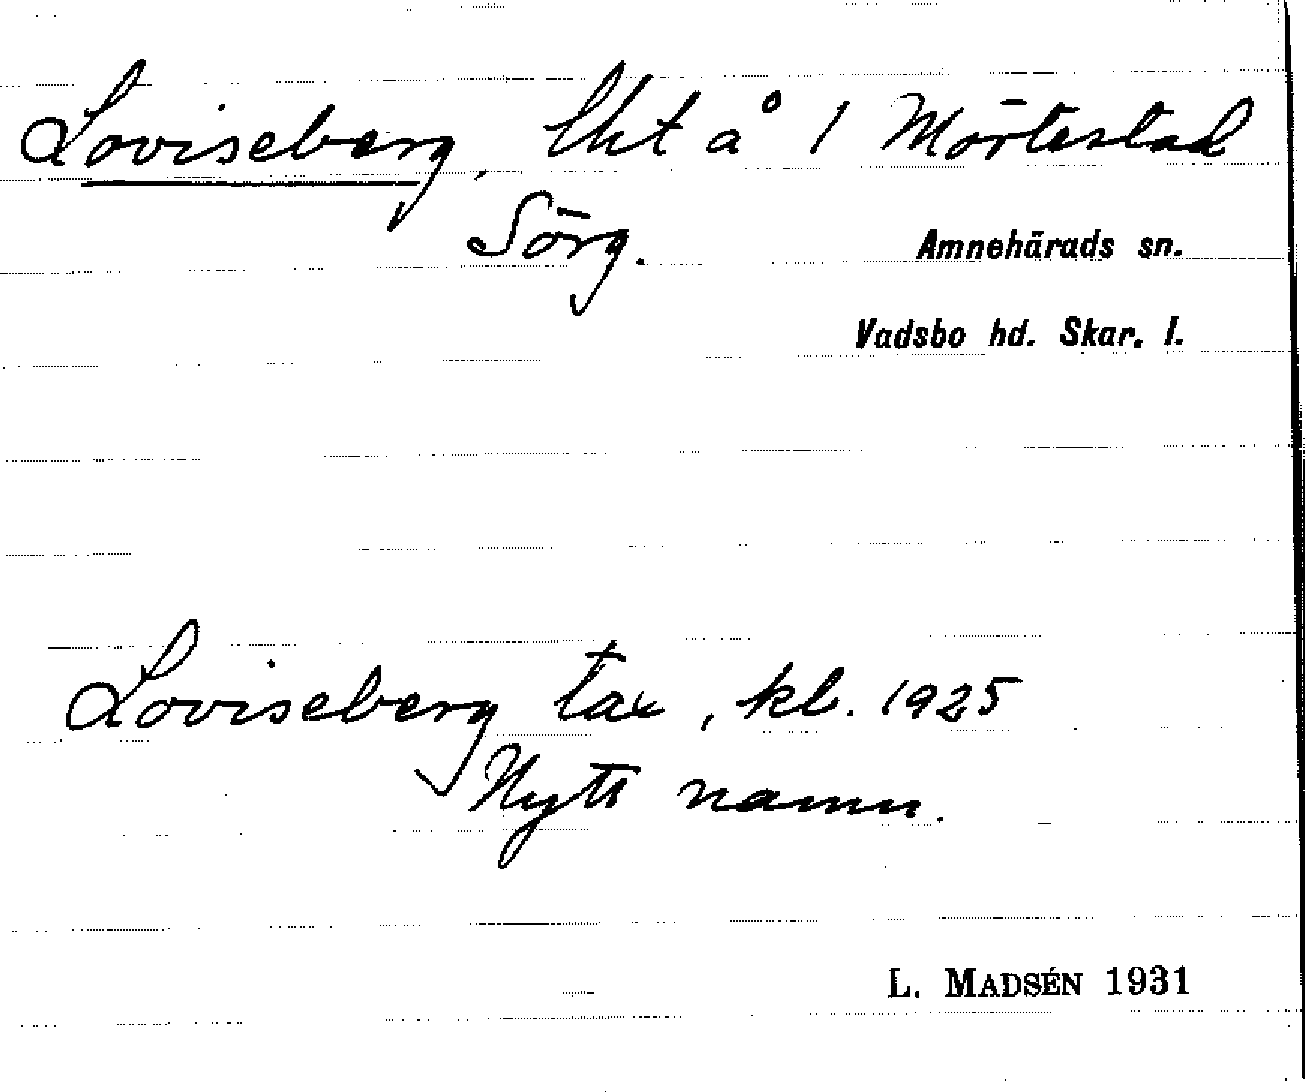 Loviseberg, lht å 1 Mörtestad
Sörg.
Amnehärads sn.
Vadsbo hd. Skar. l.
Loviseberg tax, kl. 1925
Nytt namn.
L. MADSÉN 1931